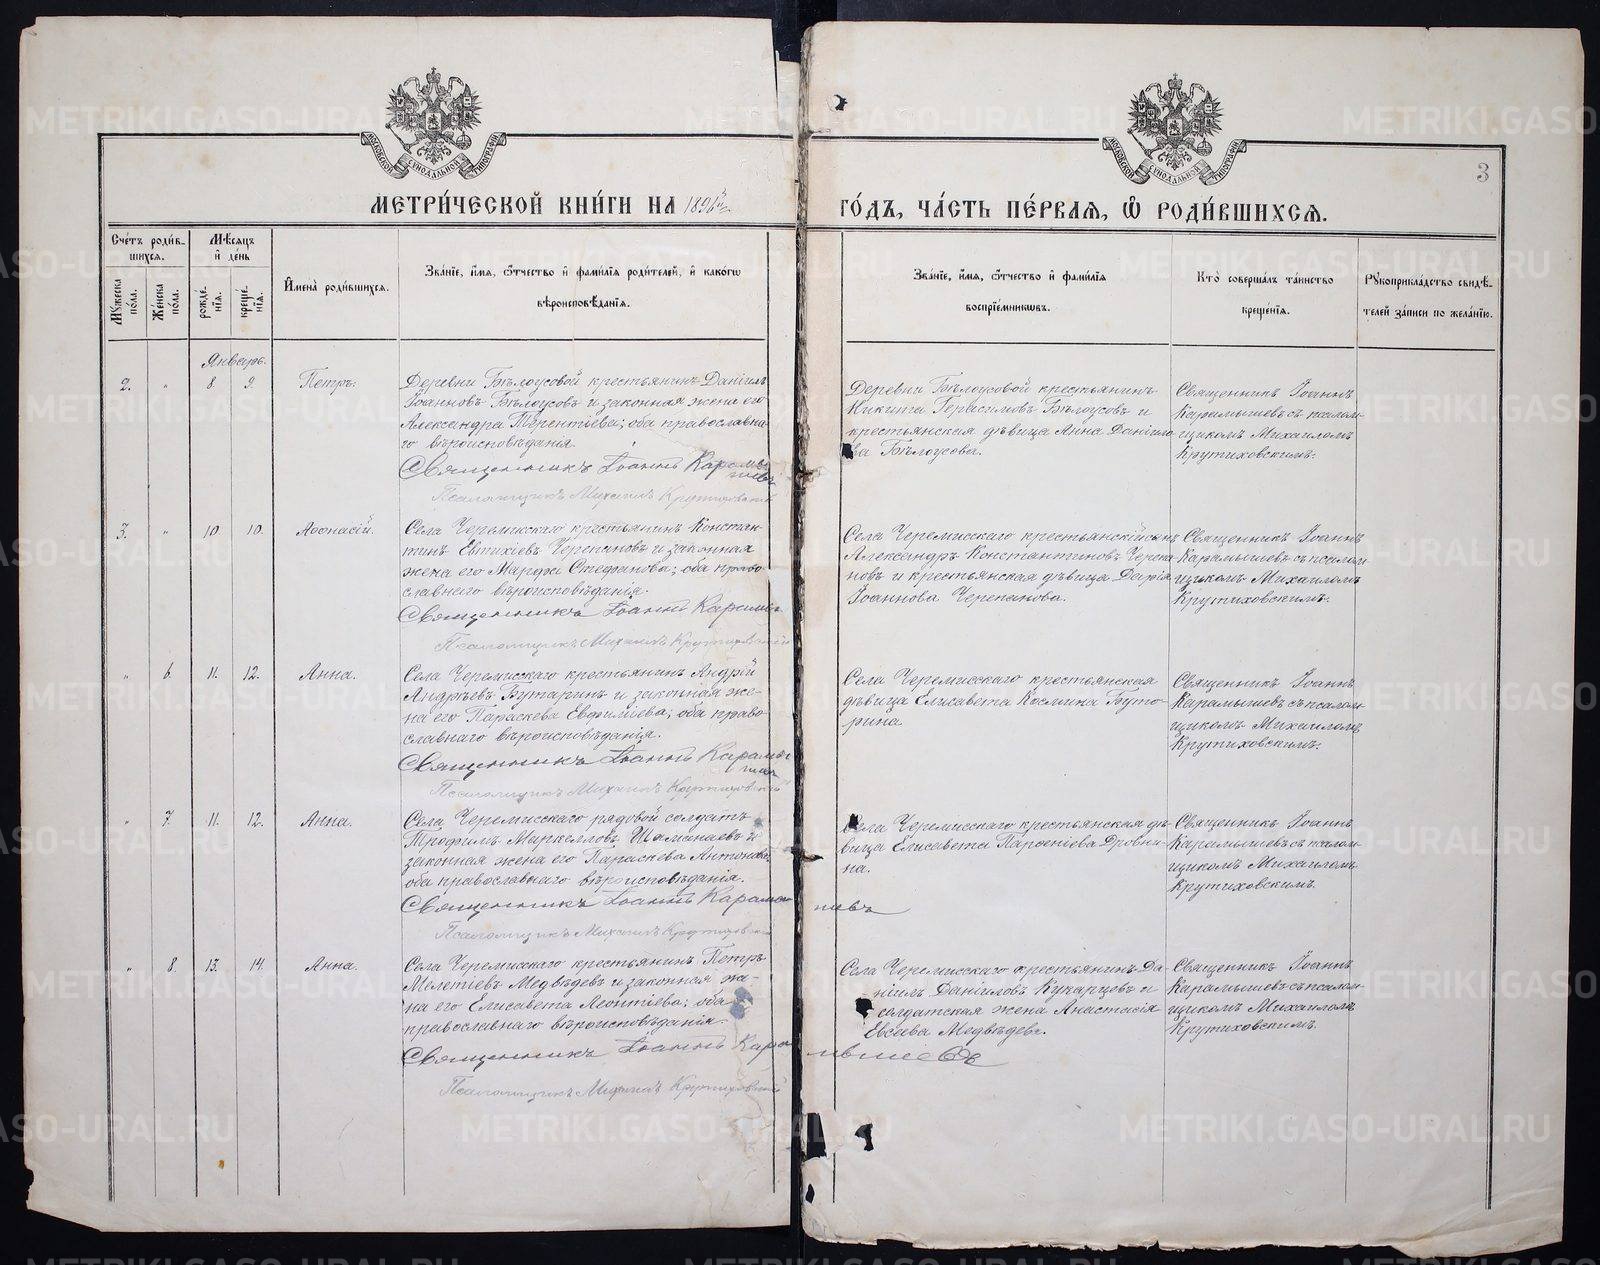 МОСКОВСКОЙ СѴНОДАЛЬНОЙ ТИПОГРАФІИ
МОСКОВСКОЙ СѴНОДАЛЬНОЙ ТИПОГРАФІИ
3
МЕТРИ́ЧЕСКОЙ КНИ́ГИ НА 1896й
ГО́ДЪ, ЧА́СТЬ ПЕ́РВАѦ, Ѡ РОДИ́ВШИХСѦ.
Сче́тъ роди́в-
шихсѧ.
Мѣ́сѧцъ
и҆ де́нь
Мꙋжеска по́ла.
Же́нска по́ла.
рожде́-
нїѧ.
креще́-
нїѧ.
И҆мена̀ роди́вшихсѧ.
Зва́нїе, и҆́мѧ, ѻ҆́тчество и҆ фами́лїѧ роди́телей, и҆ како́гѡ
вѣроисповѣ́данїѧ.
Зва́нїе, и҆́мѧ, ѻ҆́тчество и҆ фами́лїѧ
воспрїе́мникѡвъ.
Кто̀ соверша́лъ та́инство
креще́нїѧ.
Рꙋкоприкла́дство свидѣ́-
телей за́писи по жела́нїю.
Январь.
2. " 8. 9. Петръ.
Деревни Бѣлоусовой крестьянинъ Даніилъ
Іоанновъ Бѣлоусовъ и законная жена его
Александра Терентьева; оба православна-
го вѣроисповѣданія.
Священникъ Іоаннъ Карамы
шевъ
Псаломщикъ Михаилъ Крутиховскій
Деревни Бѣлоусовой крестьянинъ
Никита Герасимовъ Бѣлоусовъ и
крестьянская дѣвица Анна Данiило
ва Бѣлоусова.
Священникъ Іоаннъ
Карамышевъ съ псалом-
щикомъ Михаиломъ
Крутиховскимъ.
3. " 10. 10. Аѳонасій.
Села Черемисскаго крестьянинъ Констан-
тинъ Евтихіевъ Черепановъ и законная
жена его Марѳа Стефанова; оба право-
славнаго вѣроисповѣданія.
Священникъ Іоаннъ Карамы
Псаломщикъ Михаилъ Крутиховскій
Села Черемисскаго крестьянскій сынъ
Александръ Константиновъ Черепа
новъ и крестьянская дѣвица Дарія
Іоаннова Черепанова.
Священникъ Іоаннъ
Карамышевъ съ псалом-
щикомъ Михаиломъ
Крутиховскимъ.
" 6. 11. 12. Анна.
Села Черемисскаго крестьянинъ Андрей
Андреевъ Бутаринъ и законная же-
на его Параскева Евфиміева; оба право-
славнаго вѣроисповѣданія.
Священникъ Іоаннъ Карамы
шевъ
Псаломщикъ Михаилъ Крутиховскій
Села Черемисскаго крестьянская
дѣвица Елисавета Космина Буто-
рина
Священникъ Іоаннъ
Карамышевъ съ псалом-
щикомъ Михаиломъ
Крутиховскимъ.
" 7. 11. 12. Анна.
Села Черемисскаго рядовой солдатъ
Трофимъ Маркелловъ Шаманаевъ и
законная жена его Параскева Антонова;
оба православнаго вѣроисповѣданія.
Священникъ Іоаннъ Карамы шевъ
Псаломщикъ Михаилъ Крутиховскій
Села Черемисскаго крестьянская дѣ-
вица Елисавета Парѳеніева Дровни-
на.
Священникъ Іоаннъ
Карамышевъ съ псалом-
щикомъ Михаиломъ
Крутиховскимъ.
" 8. 13. 14. Анна.
Села Черемисскаго крестьянинъ Петръ
Мелетіевъ Медвѣдевъ и законная же-
на его Елисавета Леонтіева; оба
православнаго вѣроисповѣданія.
Священникъ Іоаннъ Кара мышевъ
Псаломщикъ Михаилъ Крутиховскій
Села Черемисскаго крестьянинъ Да-
ніилъ Даніиловъ Кукарцевъ и
солдатская жена Анастасія
Евсеева Медвѣдева.
Священникъ Іоаннъ
Карамышевъ съ псалом-
щикомъ Михаиломъ
Крутиховскимъ.
METRIKI.GASO-URAL.RU